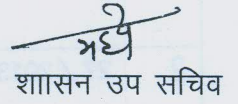 शाासन उप सचिव